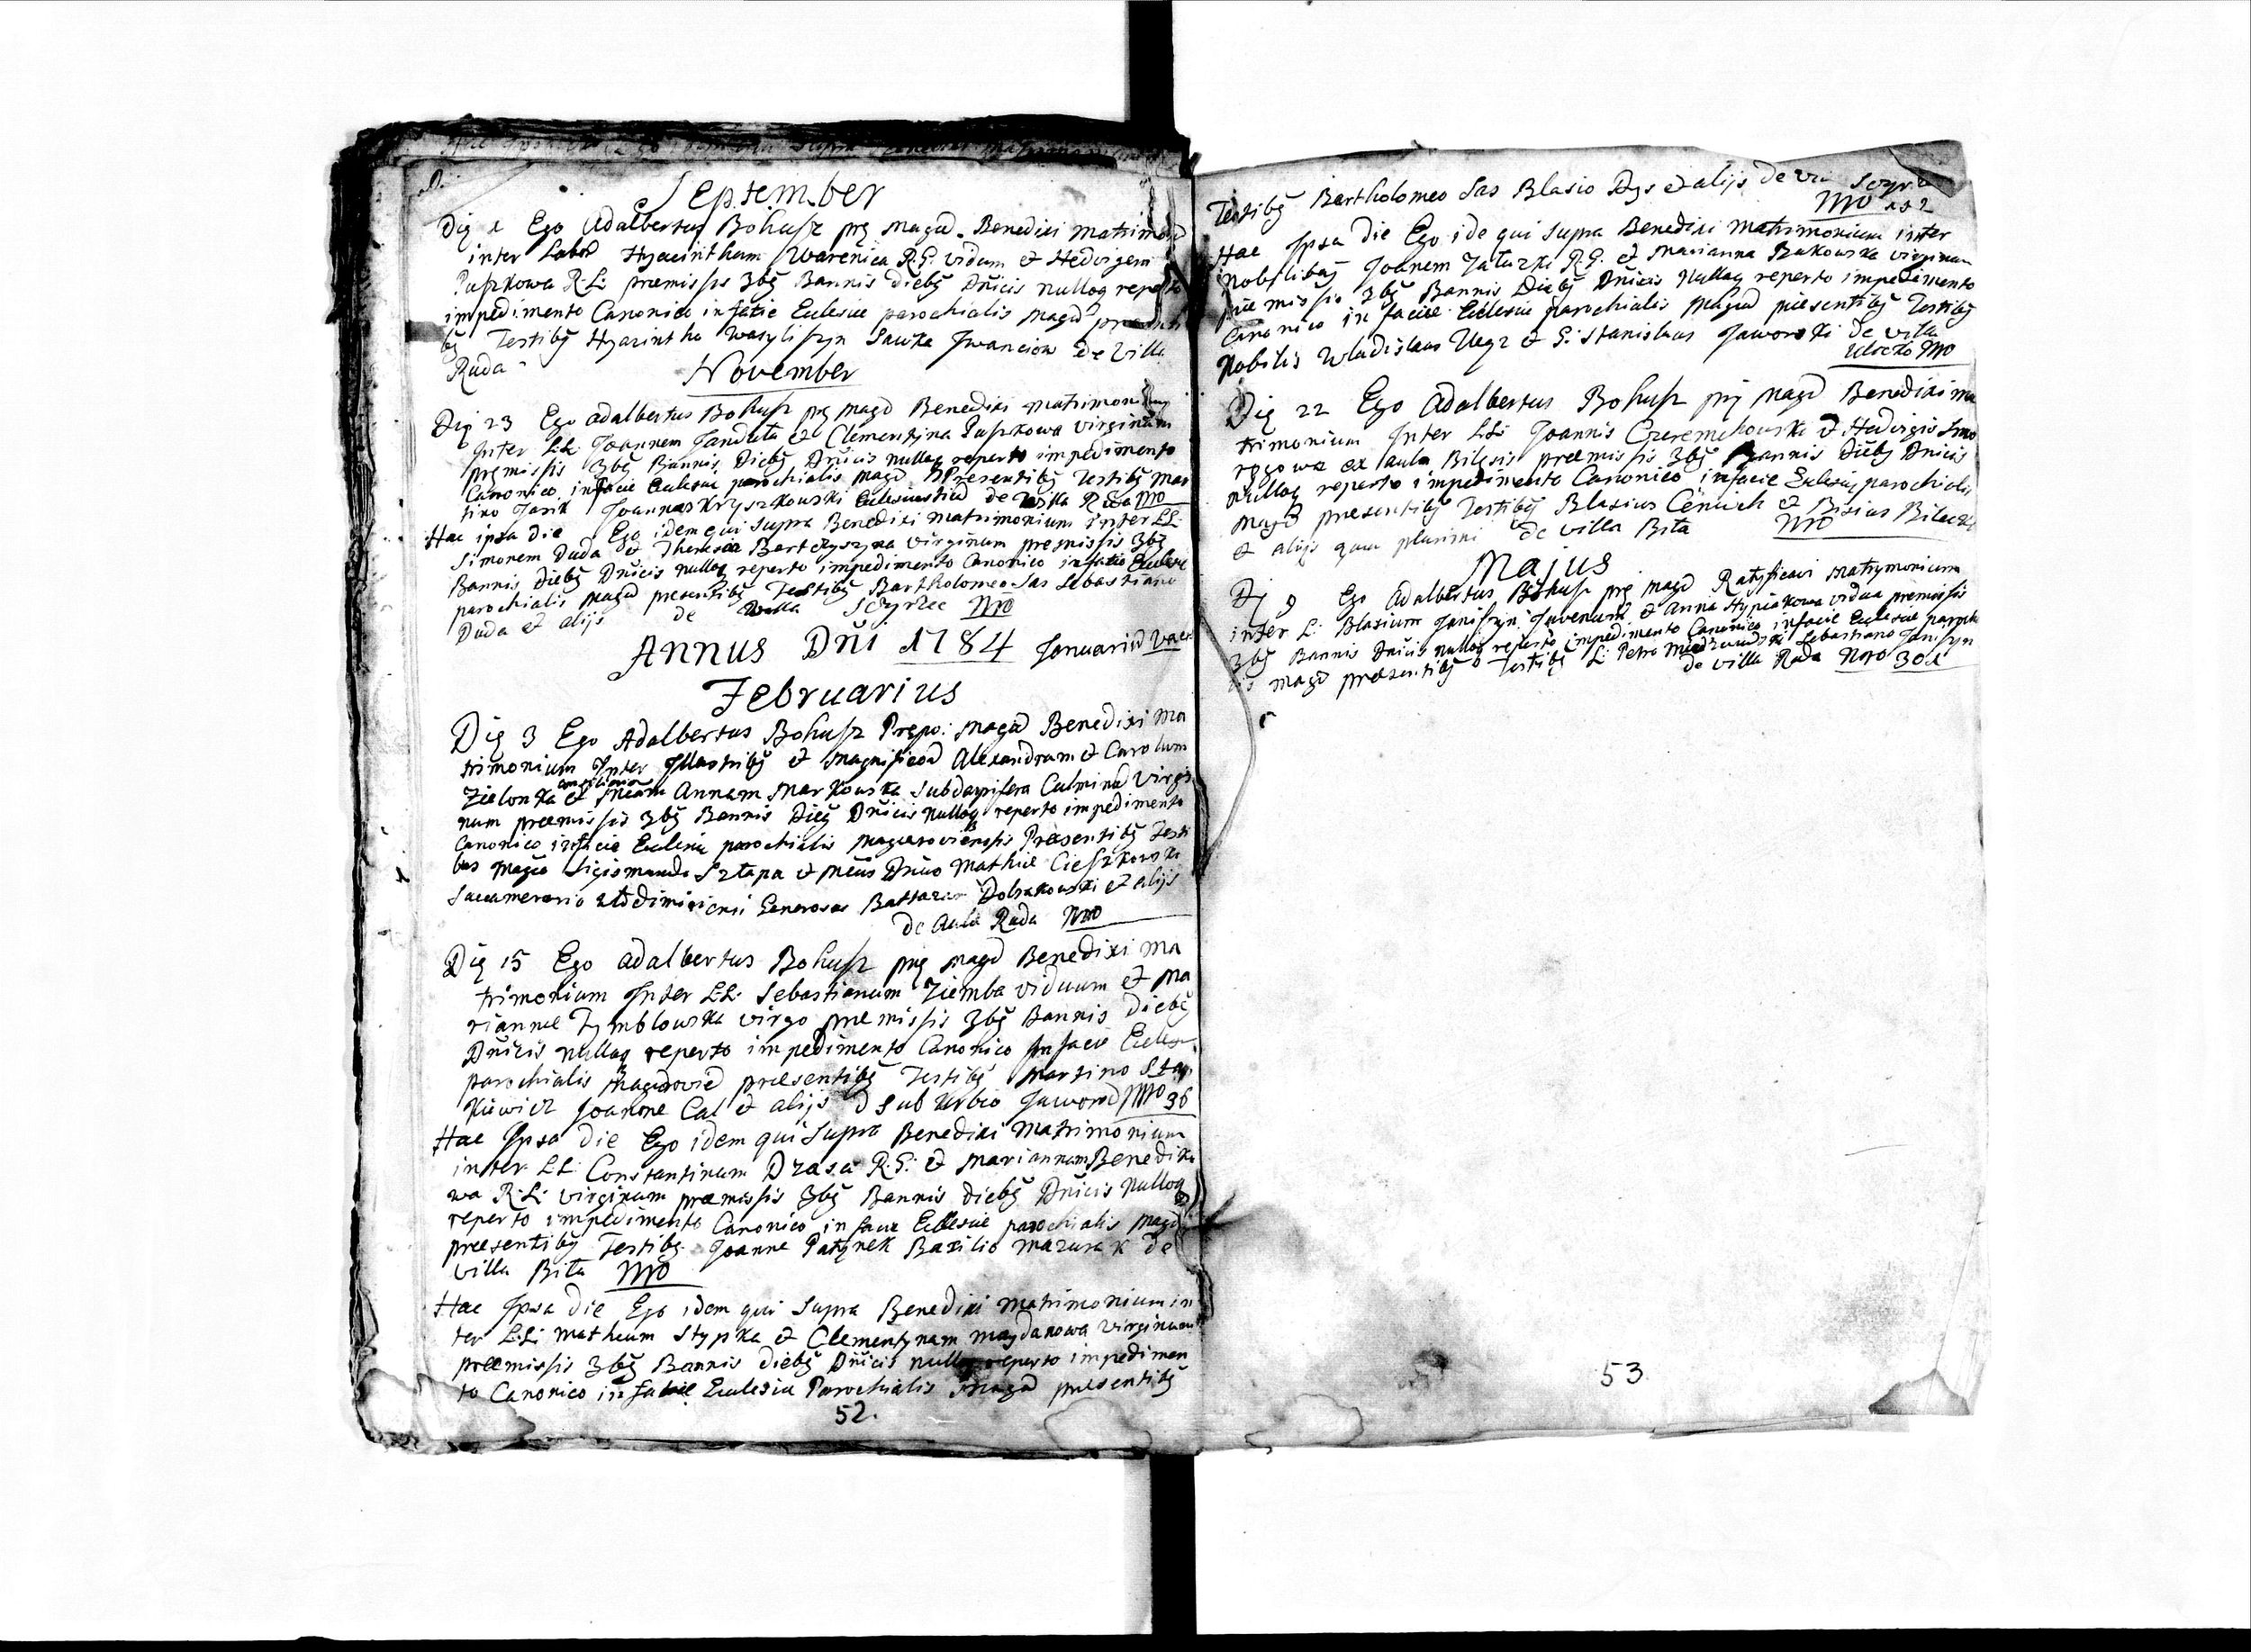 September
Die 1 Ego Adalbertus Bohusz prę Magd. Benedixi Matrimon
inter Labor Hyacinthum Warenica R.G. vidum et Hedvigem
Puszkowa R.L. premissis 3bꝰ Bannis diebꝰ Dñicis nulloq reperto
impedimento Canonico in facie Eclesiæ parochialis Magd præsenti
bꝰ Testibꝰ Hyacintho Wasyliszyn Sawka Iwanciow de Villa
Ruda
November
Die 23 Ego Adalbertus Bohusz prę Magd Benedixi Matrimonium
Inter LL. Joannem Janduła et Clementyna Puszkowa virginum
premissis 3bꝰ Bannis Diebꝰ Dñicis nulloq reperto impedimento
Canonico in facie Eclesiæ parochialis Magd Presentibꝰ Testibꝰ Mar
tino Jasik Joannes Kryszkowski Eclesiastico de Ruda Nro
Hac ipsa die Ego idem qui supra Benedixi Matrimonium inter LL.
Simonem Duda et Theresia Bartłyszyna virginum premissis 3bꝰ
Bannis diebꝰ Dñicis nulloq reperto impedimento Canonico in facie Eclesiæ
parochialis Magd presentibꝰ Testibꝰ Bartholomeo Sas Sebastiano
Duda et alijs de Villa Scyrzec Nro
Annus Dñi 1784 Januarius Vacat
Februarius
Die 3 Ego Adalbertus Bohusz Prępo: Magd Benedixi Ma
trimonium Inter Illustribꝰ et Magnificos Alexandrum et Carolum
Zielonka et Annam Markowska Subdapifera Culmins Virgi
num præmissis 3bꝰ Bannis Diebꝰ Dñicis nulloq reperto impedimento
Canonico in facie Eclesiæ parochialis Magieroviensis Præsentibꝰ Testi
bus Magco Sigismundo Sztapa et Dñio Mathiæ Cieszkowski
Succamerario Generosus Baltazar Dobrakowski et alijs
de Aula Ruda Nro
Die 15 Ego Adalbertus Bohusz prę Magd Benedixi Ma
trimonium Inter LL. Sebastianum Ziemba viduum et Ma
riannæ Tymblowska virgo præmissis 3bꝰ Bannis Diebꝰ
Dñicis nulloq reperto impedimento Canonico in facie Ecles
parochialis Magierovie præsentibꝰ Testibꝰ Martino Stan
kiewicz Joanne Cal et alijs d Suburbio Jaword Nro 36
Hac Ipsa die Ego idem qui Supra Benedixi Matrimonium
inter LL. Constantinum Drasa R.G. et Mariannam Benedixi
wa R.L. virginum præmissis 3bꝰ Bannis diebꝰ Dñicis Nulloq
reperto impedimento Canonico in facie Ecclesiæ parochialis Magd
præsentibꝰ Testibꝰ Joanne Patynek Baxilio Mazurak de
villa Biła Nro
Hac Ipsa die Ego idem qui Supra Benedixi Matrimonium in
ter LL. Matheum Stypka et Clementynam Maydanowa Virginum
præmissis 3bꝰ Bannis diebꝰ Dñicis nulloq reperto impedimen
to Canonico in facie Eclesiæ Parochialis Magd præsentibꝰ
52.
Testibꝰ Bartholomeo Sas Blasio Dys et alijs de Scyrz
Nro 182
Hac Ipsa die Ego ide qui Supra Benedixi Matrimonium inter
Nobilibꝰ Joanem Załuzki R.G. et Marianna Bukowska virginum
præmissis 3bꝰ Bannis Diebꝰ Dñicis Nulloq reperto impedimento
Canonico in faciæ Eclesiæ parochialis Magd præsentibꝰ Testibꝰ
Nobilis Wladislaus Uhgr et G. Stanislaus Jaworski de villa
Ulicko Nro
Die 22 Ego Adalbertus Bohusz prę Magd Benedixi Ma
trimonium Inter LL. Joannis Czeremchowski et Hedvigis Smo
rogowa ex aula Bilęsis præmissis 3bꝰ Bannis Diebꝰ Dnicis
Nulloq reperto impedimento Canonico in facie Eclesiæ parochialis
Magd præsentibꝰ Testibꝰ Blasius Ceniuch et Bisius Bileczki
et alijs quam plurimi de villa Biła Nro
Majus
Die 9 Ego Adalbertus Bohusz prę Magd Ratyficavi Matrymonium
inter L. Blasium Janiszyn Juvenum et Anna Hypiakowa vidua premissis
3bꝰ Bannis Dnicis nulloq reperto impedimento Canonico in facie Eclesiæ paroch
lis Magd præsentibꝰ Testibꝰ L. Petro Sebastiano Janiszyn
de villa Ruda Nro 301
53.